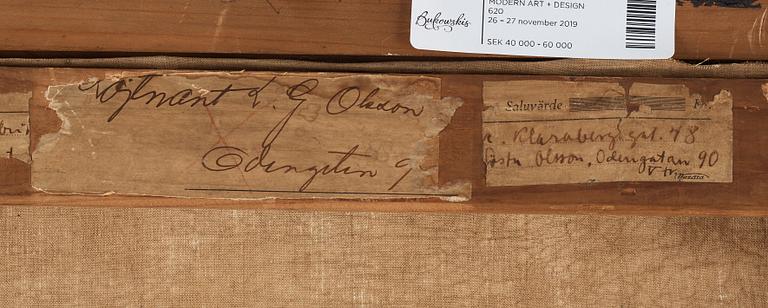 Bukowskis
MODERN ART + DESIGN
620
26 – 27 november 2019
SEK 40 000 - 60 000
Löjtnant L. G Olsson
Odengatan 9
Saluvärde
Kr.
Klarabergsgat. 48
Gösta Olsson, Odengatan 90